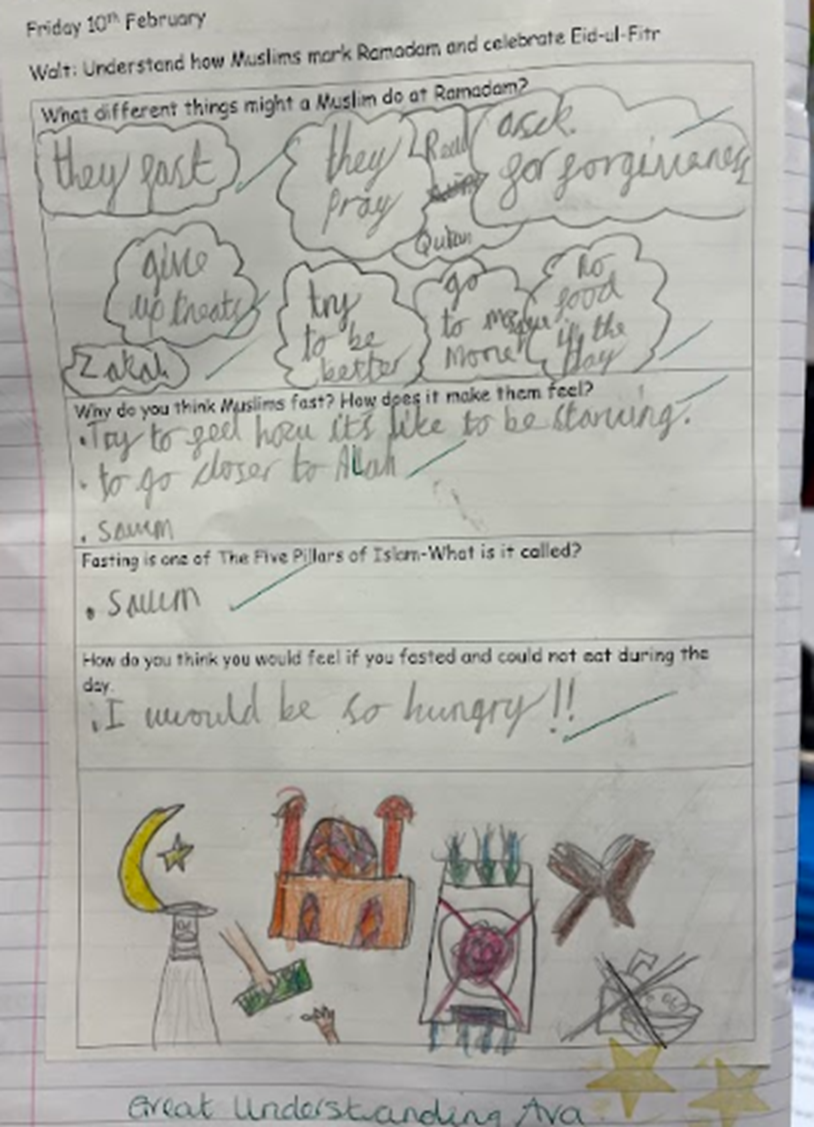 Friday 10th February
Walt: Understand how Muslims mark Ramadam and celebrate Eid-ul-Fitr
What different things might a Muslim do at Ramadam?
they fast
they
pray
Read
Quran
asck
for forgivaness
give
up treats
Zakah
try
to be
better
go
to mosque
more
no
food
in the
day
Why do you think Muslims fast? How does it make them feel?
• Try to feel how it's like to be starving.
• to go closer to Allah
• Sawm
Fasting is one of The Five Pillars of Islam-What is it called?
• Sawm
How do you think you would feel if you fasted and could not eat during the
day.
• I wwould be so hungry!!
Great Understanding Ava